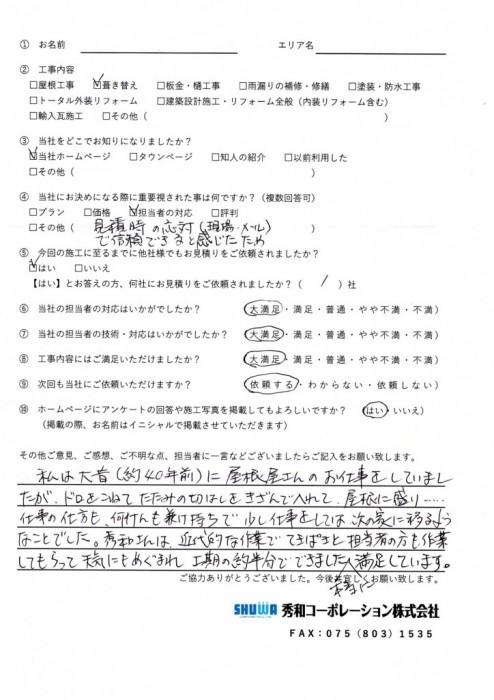 ① お名前 エリア名
② 工事内容
□屋根工事 ☑葺き替え □板金・樋工事 □雨漏りの補修・修繕 □塗装・防水工事
□トータル外装リフォーム □建築設計施工・リフォーム全般（内装リフォーム含む）
□輸入瓦施工 □その他（ ）
③ 当社をどこでお知りになりましたか？
☑当社ホームページ □タウンページ □知人の紹介 □以前利用した
□その他（ ）
④ 当社にお決めになる際に重要視された事は何ですか？（複数回答可）
□プラン □価格 ☑担当者の対応 □評判
□その他（ 見積時の応対（現場・メール） ）
で信頼できると感じたため
⑤ 今回の施工に至るまでに他社様でもお見積りをご依頼されましたか？
☑はい □いいえ
【はい】とお答えの方、何社にお見積りをご依頼されましたか？（ 1 ）社
⑥ 当社の担当者の対応はいかがでしたか？ （大満足・満足・普通・やや不満・不満）
⑦ 当社の担当者の技術・対応はいかがでしたか？ （大満足・満足・普通・やや不満・不満）
⑧ 工事内容にはご満足いただけましたか？ （大満足・満足・普通・やや不満・不満）
⑨ 次回も当社にご依頼いただけますか？ （依頼する・わからない・依頼しない）
⑩ ホームページにアンケートの回答や施工写真を掲載してもよろしいですか？ （はい・いいえ）
（掲載の際、お名前はイニシャルで掲載させていただきます）
その他ご意見、ご感想、ご不明な点、担当者に一言などございましたらご記入をお願い致します。
私は大昔（約40年前）に屋根屋さんのお仕事をしていまし
たが、ドロをこねてたたみの切はしをきざんで入れて、屋根に盛り……
仕事の仕方も、何けんも兼け持ちで少し仕事をしては次の家に移るよう
なことでした。秀和さんは、近代的な作業でてきぱきと担当者の方も作業
してもらって天気にもめぐまれ工期の約半分でできました。本当に満足しています。
ご協力ありがとうございました。今後共宜しくお願い致します。
SHUWA 秀和コーポレーション株式会社
FAX：075（803）1535